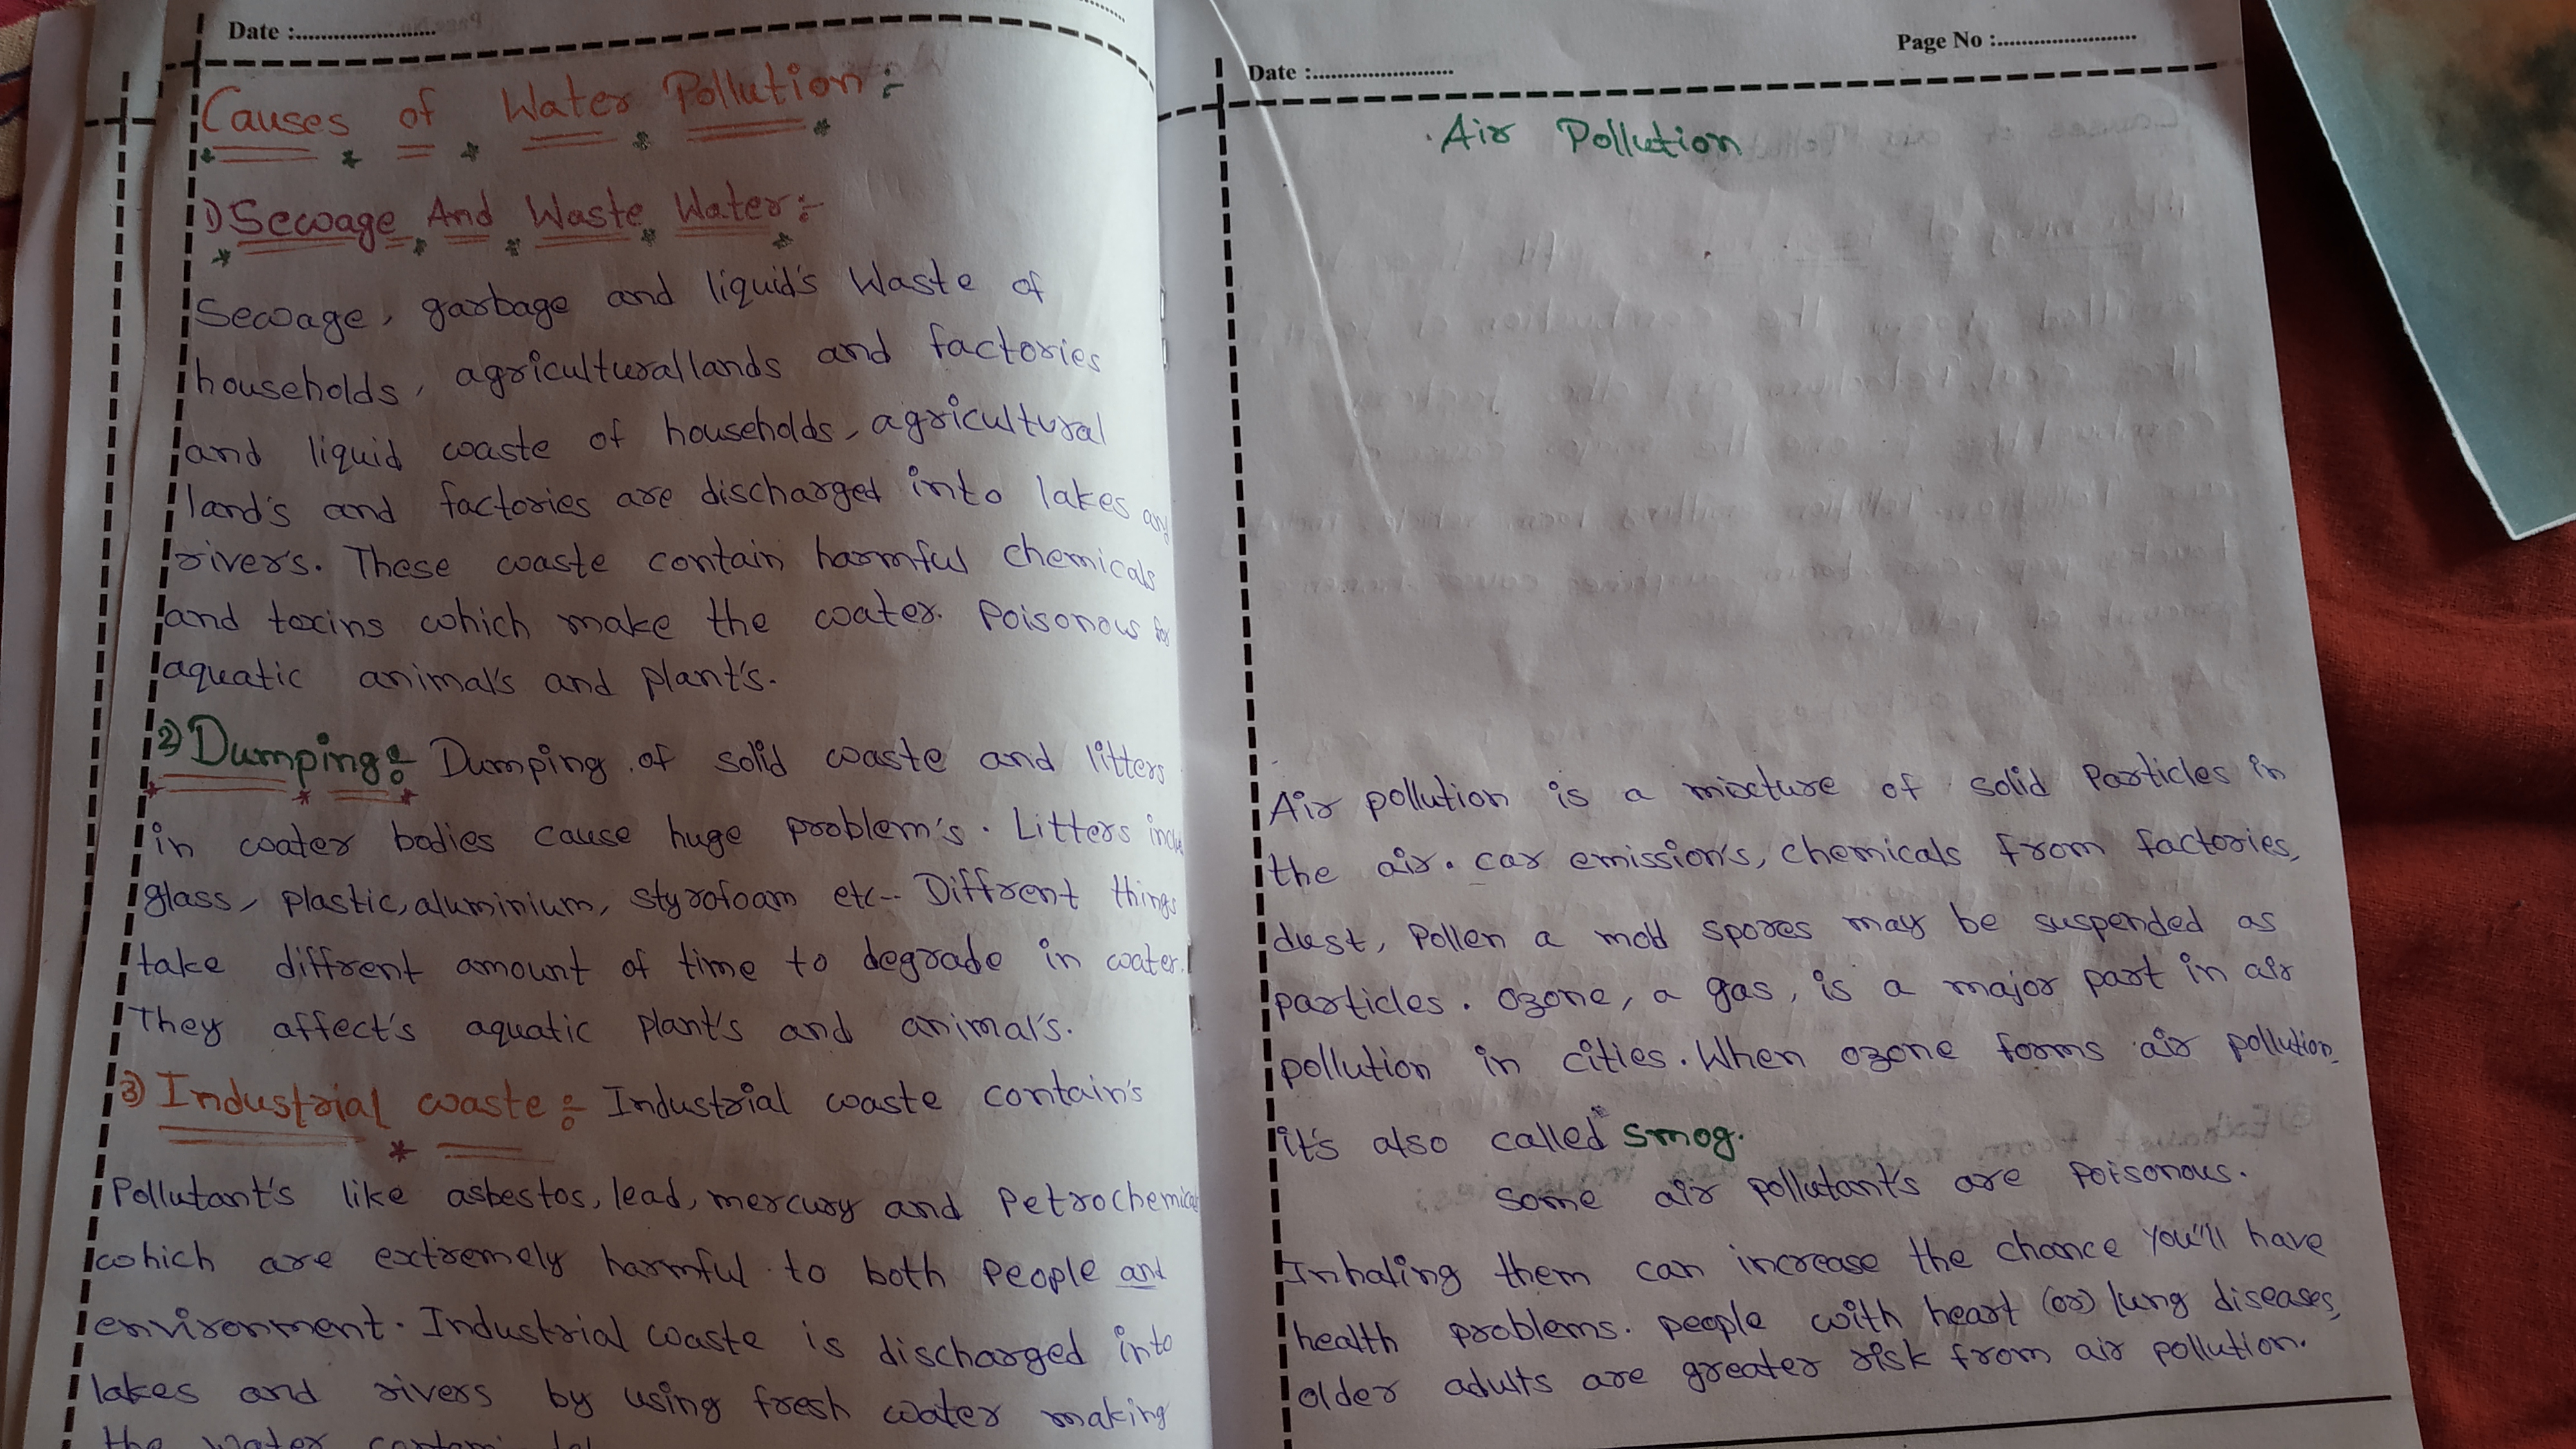 Date :........................
Causes of Water Pollution :-
1) Sewage And Waste Water:-
Sewage, garbage and liquid's Waste of
households, agriculturallands and factories
and liquid waste of households, agricultural
land's and factories are discharged into lakes and
river's. These waste contain harmful chemicals
and toxins which make the water. Poisonous for
aquatic animal's and plant's.
2) Dumping:- Dumping of solid waste and litters
in water bodies cause huge problem's. Litters
glass, plastic, aluminium, styrofoam etc-- Diffrent things
take diffrent amount of time to degrade in water.
They affect's aquatic plant's and animal's.
3) Industrial waste:- Industrial waste contain's
Pollutant's like asbestos, lead, mercury and Petrochemical
which are extremely harmful to both People and
environment. Industrial waste is discharged into
lakes and rivers by using fresh water making
the water
Page No :........................
Date :........................
Air Pollution
Air pollution is a mixture of solid Particles in
the air. car emission's, chemicals from factories,
dust, Pollen a mold spores may be suspended as
particles. Ozone, a gas, is a major part in air
pollution in cities. When ozone forms air pollution,
it's also called smog.
some air pollutant's are Poisonous.
Inhaling them can increase the chance You'll have
health problems. people with heart (or) lung diseases,
older adults are greater risk from air pollution.